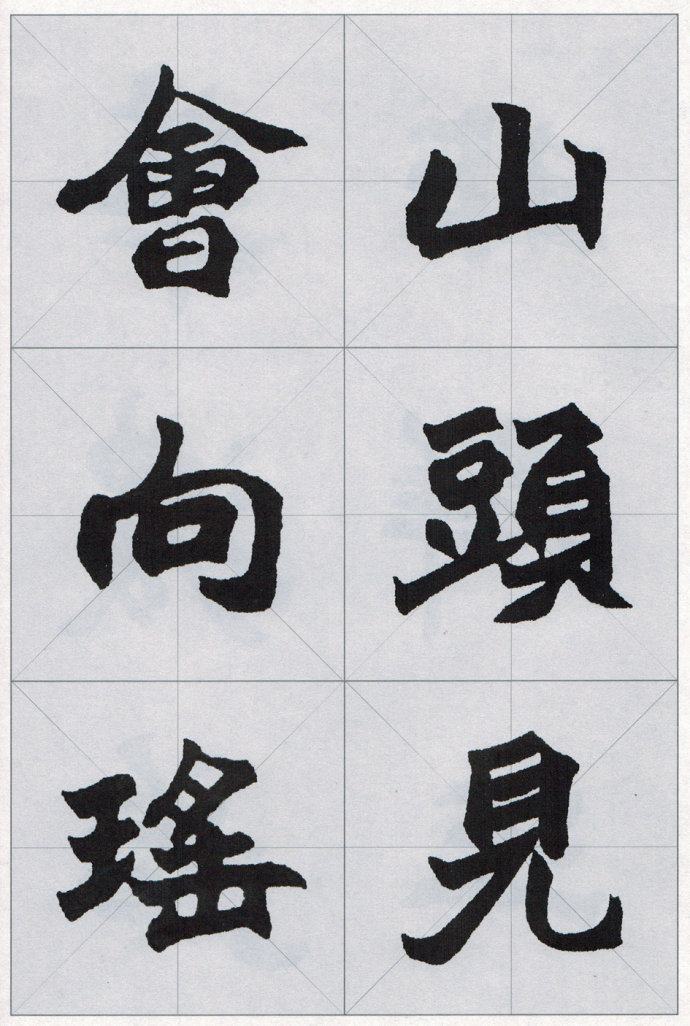 山頭見
會向瑤